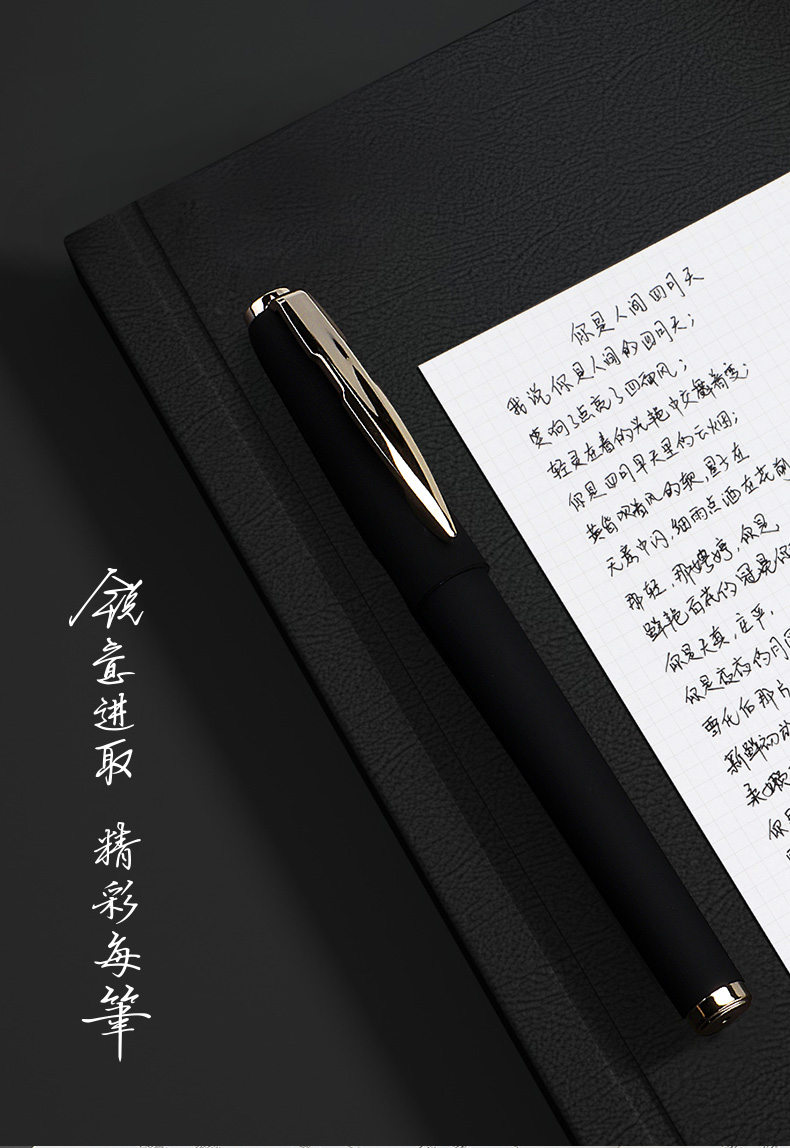 锐意进取 精彩每筆
你是人间四月天
我说你是人间的四月天；
笑响了点亮了四面风；
轻灵在春的光艳中交舞着变。
你是四月早天里的云烟；
黄昏吹着风的软，星子在
无意中闪，细雨点洒在花前
那轻，那娉婷，你是
鲜艳百花的冠冕你
你是天真，庄严，
你是夜夜的月圆
雪化后那片
新鲜初放
柔嫩
你是